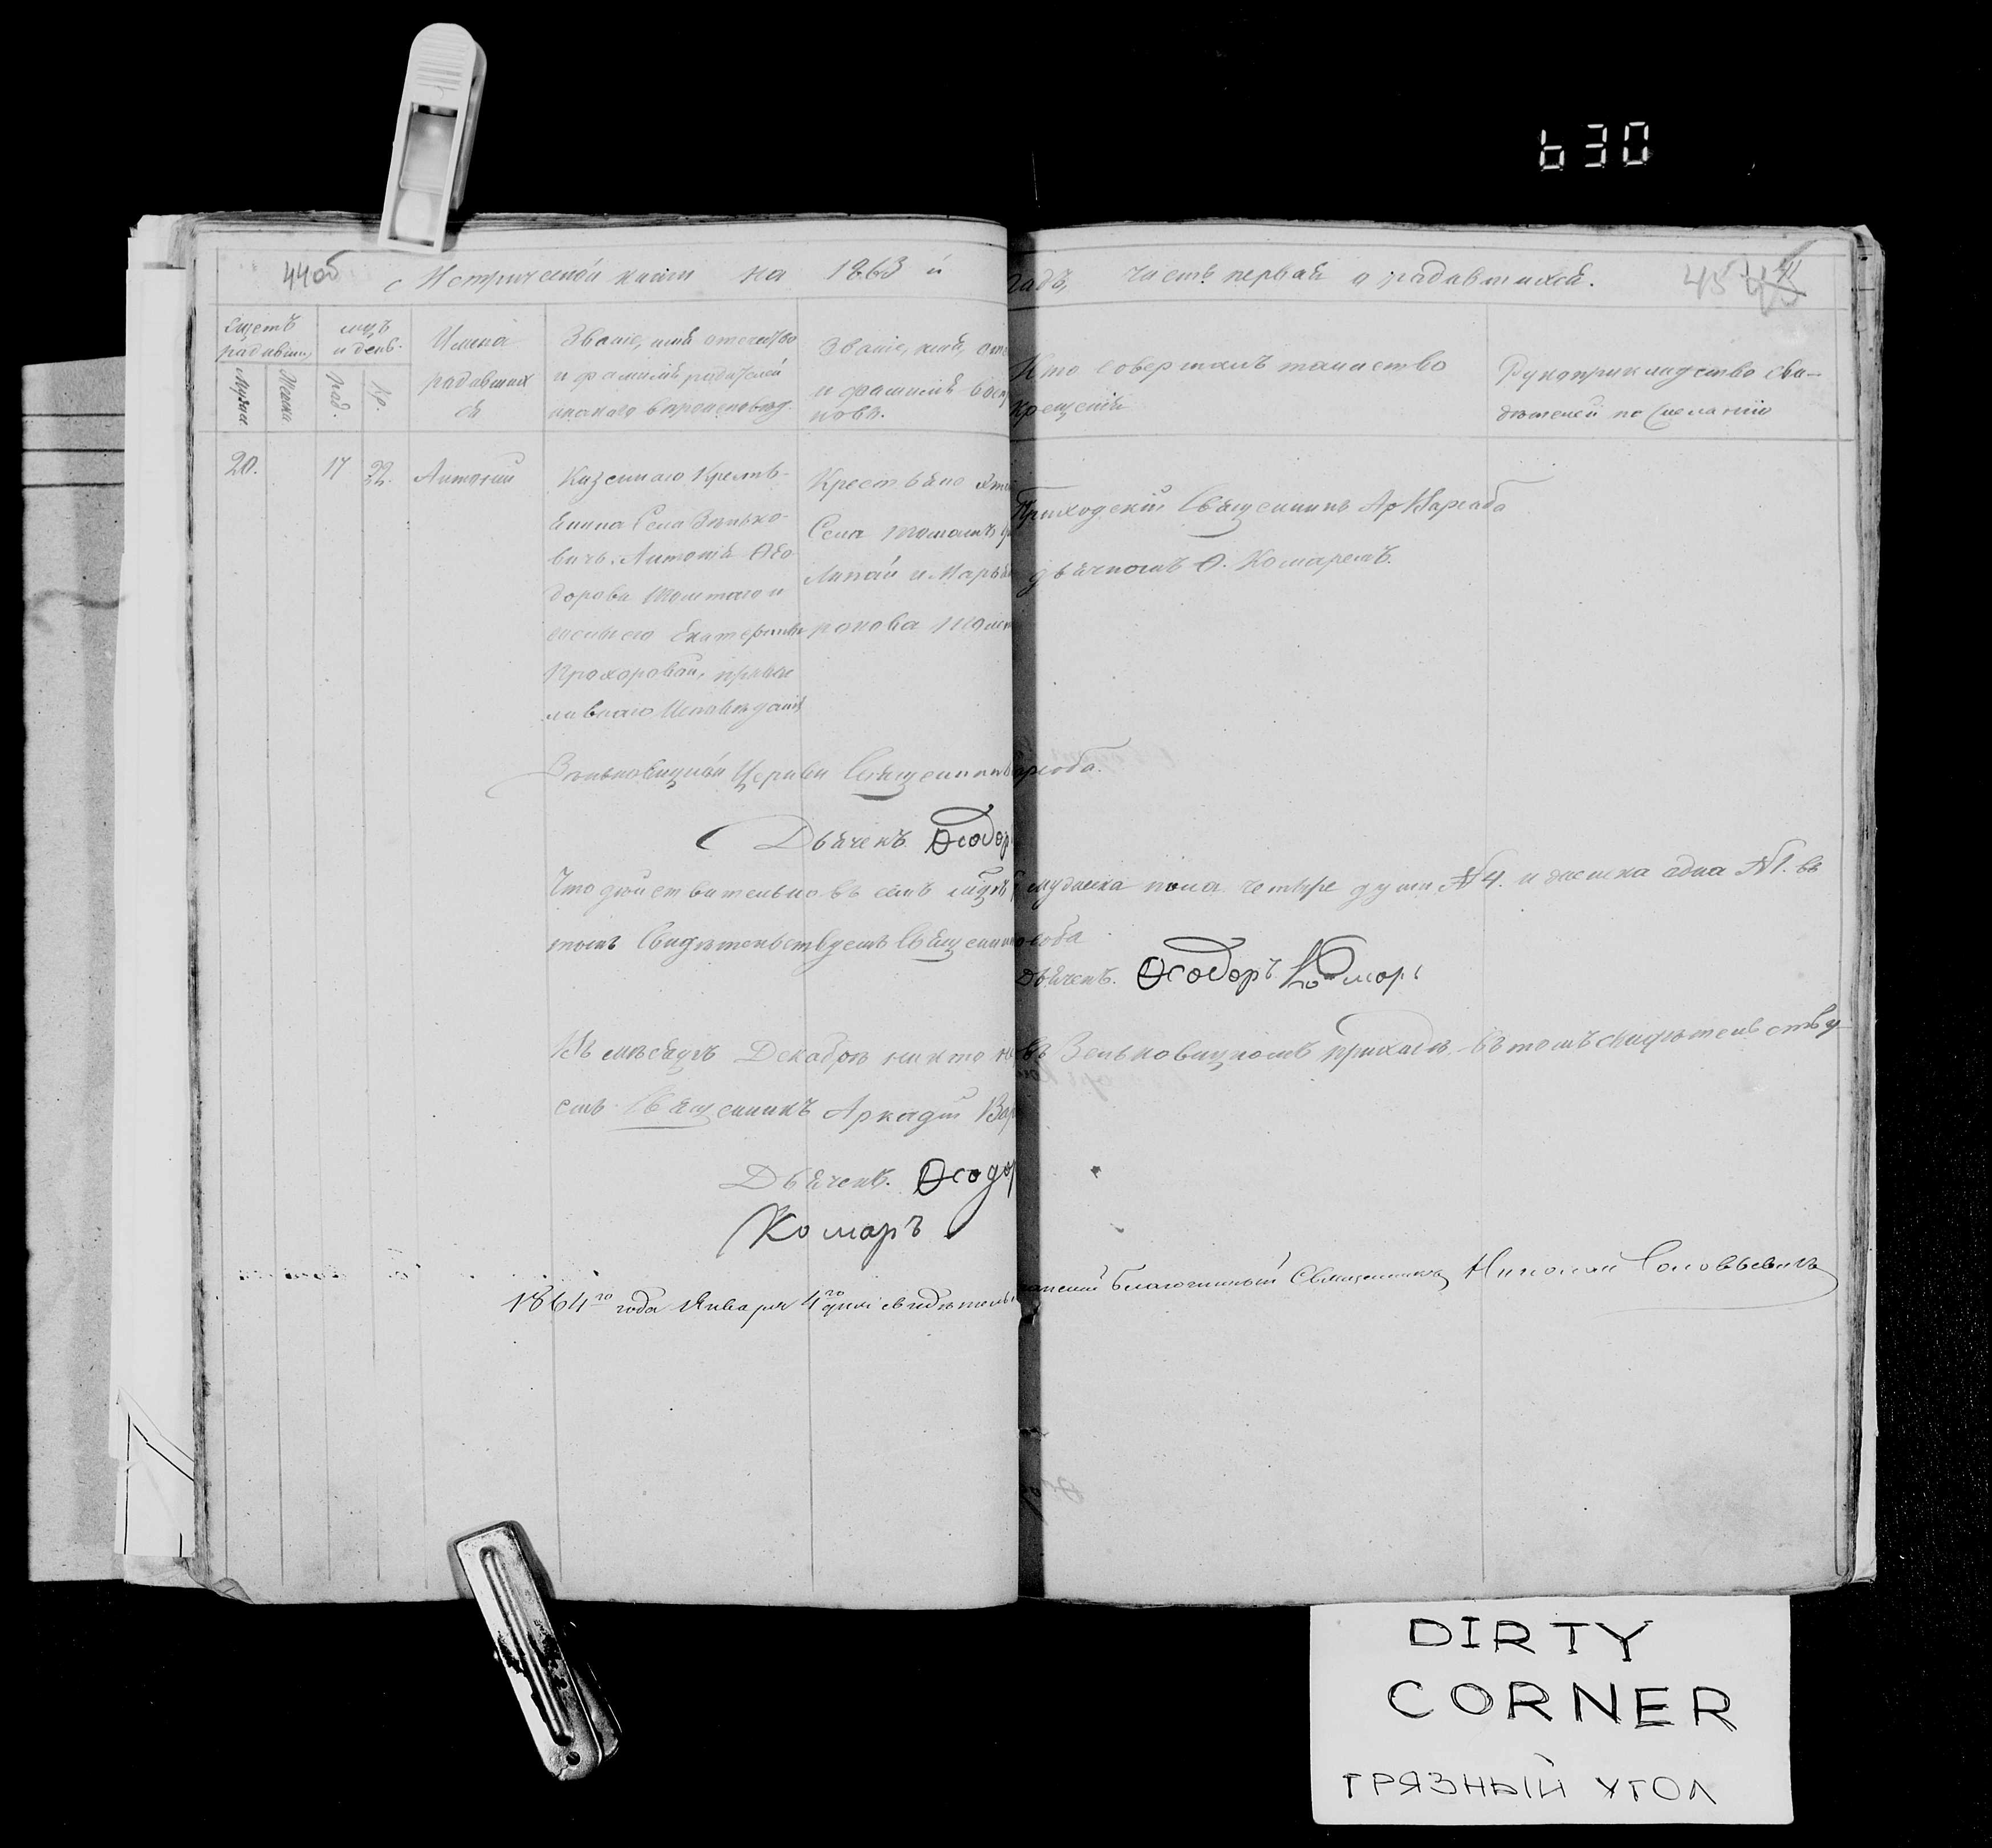 630
44об
Метрической книги на 1863 й
годъ, часть первая о родившихся.
45
Счетъ родивш.
Мужск.
Женск.
мцъ и день.
рож.
кр.
Имена
родивших
ся
Званіе, имя отечество
и фамилія родителей
и какого вѣроисповѣд.
Званіе, имя, оте
и фамилія восп
новъ.
Кто совершалъ таинство
крещенія
Рукоприкладство сви-
дѣтелей по желанію
20.
17
22.
Антоній
Казеннаго Кресть-
янина Села Зенько-
вичъ Антонія Ѳео-
дорова и
жены его Екатерины
Прохоровой, правос
лавнаго Исповѣданія
Крестьяне
Села
и Марья
Приходскій Священникъ Ар Варгаба
дьячкомъ Ѳ. Комаремъ.
Зеньковицкой Церкви Священникъ
Дьячекъ Ѳеодор
Что дѣйствительно въ семъ мужеска пола четыре души №4. и женска одна №1. въ
томъ Свидѣтельствуетъ Священник
Дьячекъ. Ѳеодоръ Комаръ
Въ мѣсяцѣ Декабрѣ никто въ Зеньковицкомъ приходѣ въ томъ свидѣтельству
етъ Священникъ Аркадій Вар
Дьячекъ. Ѳеодор
Комаръ
1864го года Января 4го дня свидѣтель благочинный Священникъ Николай Соловьевичъ
DIRTY
CORNER
ГРЯЗНЫЙ УГОЛ